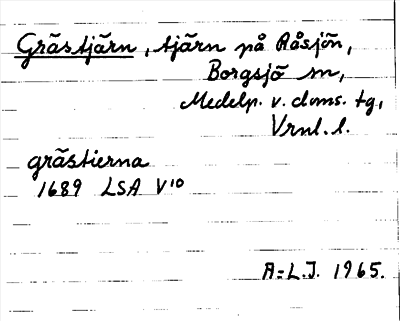 Grästjärn, tjärn på Råsjön,
Borgsjö sn,
Medelp. v. doms. tg,
Vrnl. l.
grästierna
1689 LSA V¹⁰
A-L.J. 1965.